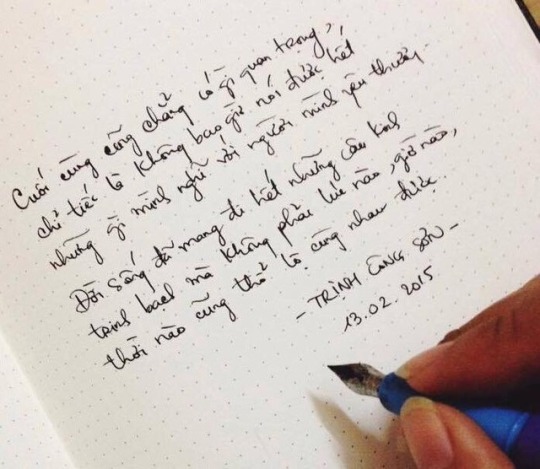 Cuối cùng cũng chẳng có gì quan trọng,
chỉ tiếc là không bao giờ nói được hết
những gì mình nghĩ với người mình yêu thương.
Đời sống đã mang đi hết những câu kinh
trinh bạch mà không phải lúc nào, giờ nào,
thời nào cũng thổ lộ cùng nhau được.
- TRỊNH CÔNG SƠN -
13.02.2015